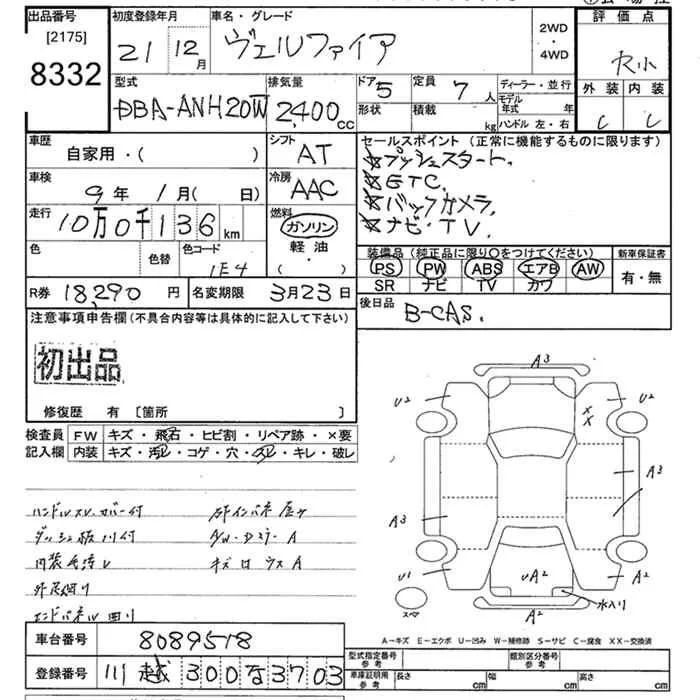 出品番号
[2175]
8332
初度登録年月
21 12月
車名・グレード
ヴェルファイア
2WD
・
4WD
評価点
外装 内装
C C
型式
DBA-ANH20W
排気量
2,400cc
ドア 5
形状
定員 7人
積載 kg
ディーラー・並行
モデル年式 年
ハンドル 左・右
車歴
自家用・( )
シフト
AT
車検
9年 1月( 日)
冷房
AAC
走行
10万0千136km
燃料
ガソリン
軽・油
( ・ )
色
色替
色コード
1E4
セールスポイント (正常に機能するものに限ります)
☆プッシュスタート.
☆ETC.
☆バックカメラ.
☆ナビ・TV.
装備品 (純正品に限り○をつけてください)
PS PW ABS エアB AW
SR ナビ TV カワ
新車保証書
有・無
R券 18,290円
名変期限 3月23日
後日品
B-CAS.
注意事項申告欄 (不具合内容等は具体的に記入して下さい)
初出品
修復歴 有 〔箇所 〕
検査員記入欄
FW キズ・飛石・ヒビ割・リペア跡・×要
内装 キズ・汚レ・コゲ・穴・スレ・キレ・破レ
ハンドルスレ カバー付
内装
A3
U2
U2
XX
A3
A3
U1
UA2
A2
A2
スペア
水入り
A-キズ E-エクボ U-凹み W-補修跡 S-サビ C-腐食 XX-交換済
車台番号 8089518
登録番号 川越 300 な 3703
型式指定番号
参考
類別区分番号
参考
車庫証明用
参考
長さ cm
幅 cm
高さ cm